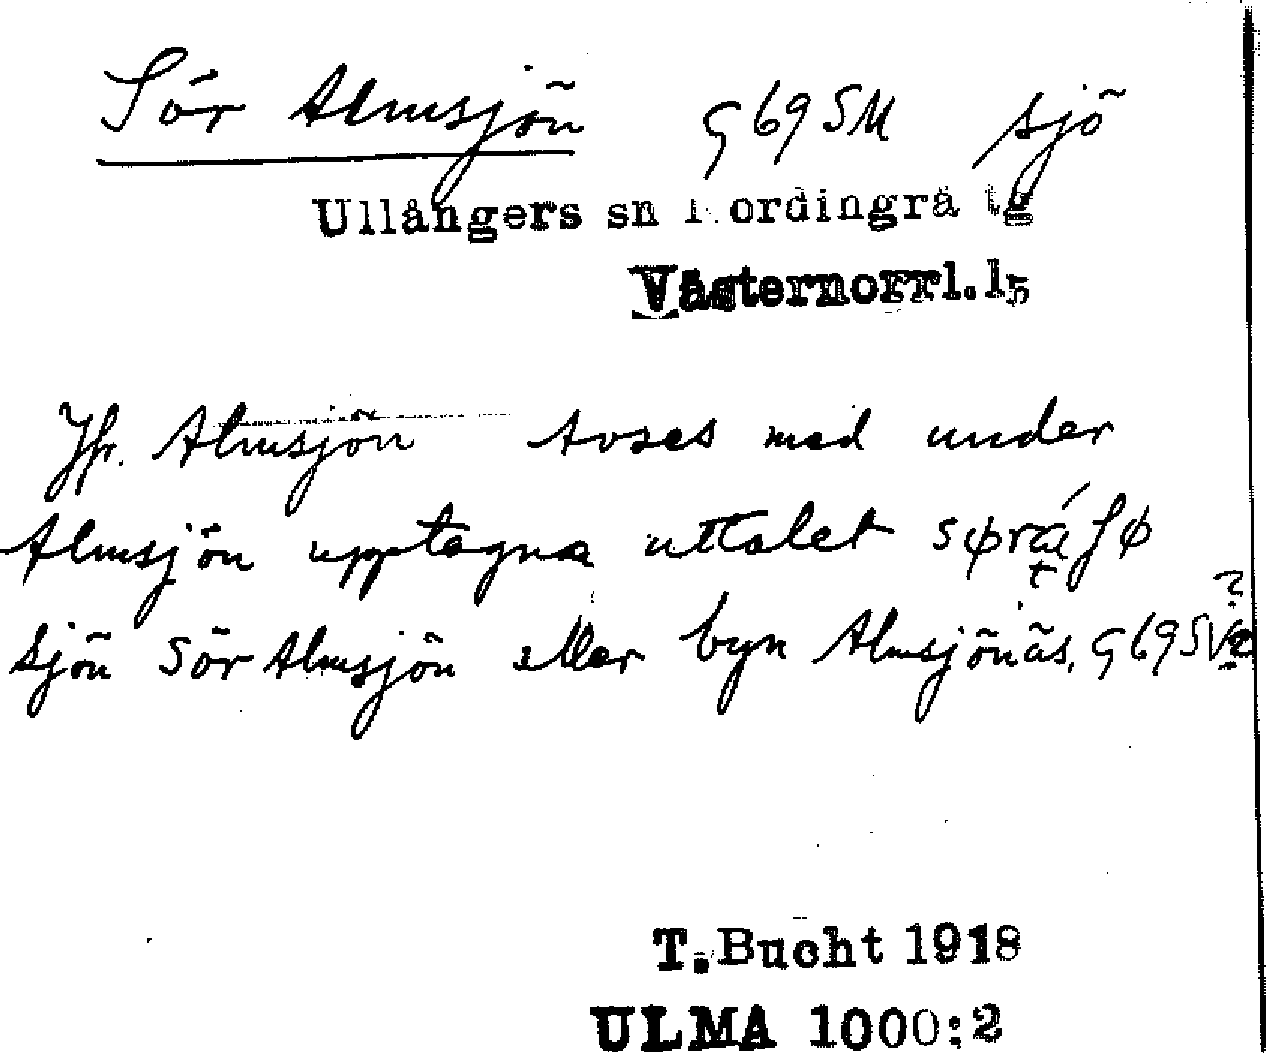 Sör Almsjön G69SM sjö
Ullångers sn Nordingrå tg
Västernorrl. ls
Jfr. Almsjön Avses med under
Almsjön upptagna uttalet
sjön Sör Almsjön eller byn Almsjönäs, G69SV?
T. Bucht 1918
ULMA 1000:2